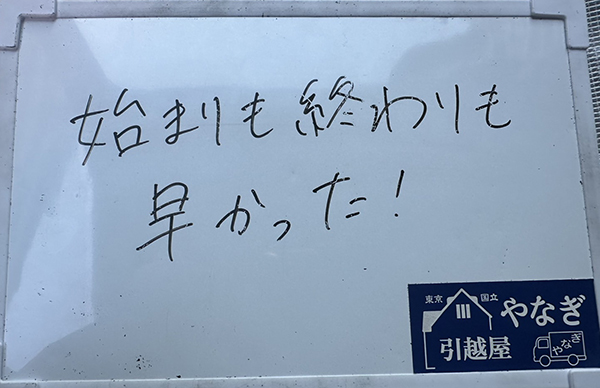 始まりも終わりも
早かった！
東京 国立 やなぎ
引越屋 やなぎ